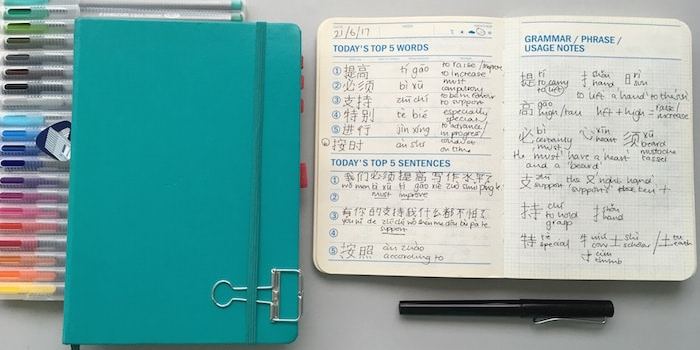 21/6/17
TODAY'S TOP 5 WORDS
① 提高 tí gāo to raise/improve
to increase
② 必须 bì xū must
compulsory
③ 支持 zhī chí to be in favour
to support
④ 特别 tè bié especially
special
⑤ 进行 jìn xíng to advance/
in progress/
conduct
按时 àn shí on time
TODAY'S TOP 5 SENTENCES
① 我们必须提高写作水平了
wǒ men bì xū tí gāo xiě zuò shuǐ píng le
must improve
②
③ 有你的支持我什么都不怕了
yǒu nǐ de zhī chí wǒ shén me dōu bù pà le
support
④
⑤ 按照 àn zhào
according to
GRAMMAR / PHRASE /
USAGE NOTES
提 tí to carry to lift 扌 shǒu hand 日 rì sun
to lift a 'hand' to the 'sun'
高 gāo high/tall lift + high = raise/increase
必 bì certainly must 心 xīn heart 须 xū beard
mustache
tassel
He 'must' have a heart
and a 'beard'
支 zhī support the 又 right hand
'supports' ten 十
持 chí to hold grasp 扌 shǒu hand
特 tè special 牛 niú cow 士 shì scholar / 土 tǔ earth
寸 cùn
thumb